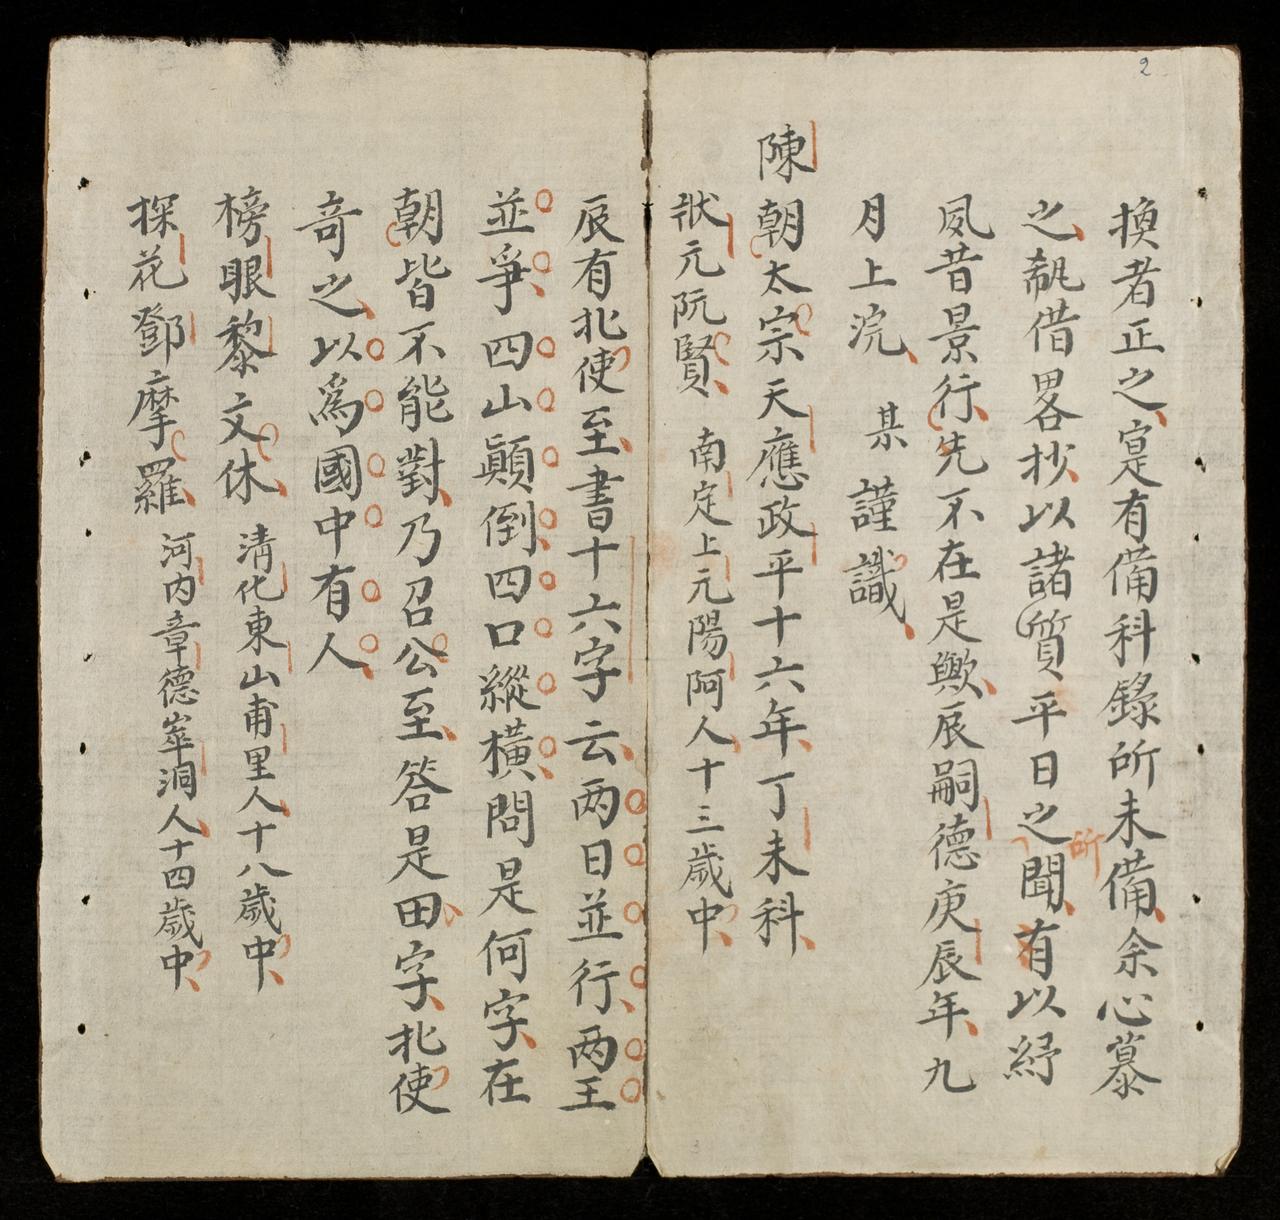 2
換者正之寔有備科錄所未備余心慕
之瓻借畧抄以諸質平日之所聞有以紓
夙昔景行先不在是歟辰嗣德庚辰年九
月上浣 某 謹識
陳朝太宗天應政平十六年丁未科
狀元阮賢 南定上元陽阿人十三歲中
辰有北使至書十六字云两日並行两王
並爭四山顛倒四口縱橫問是何字在
朝皆不能對乃召公至答是田字北使
奇之以為國中有人
榜眼黎文休 清化東山甫里人十八歲中
探花鄧摩羅 河内章德崒洞人十四歲中